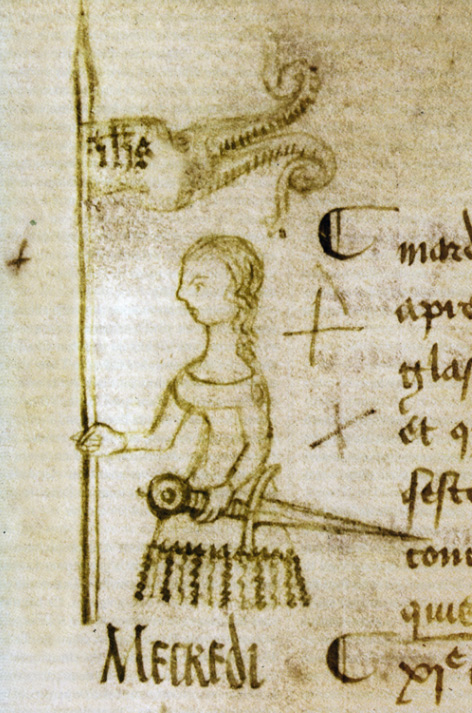 ihs
C mard
apre
glas
Et q
feste
quie
MECREdI C xje